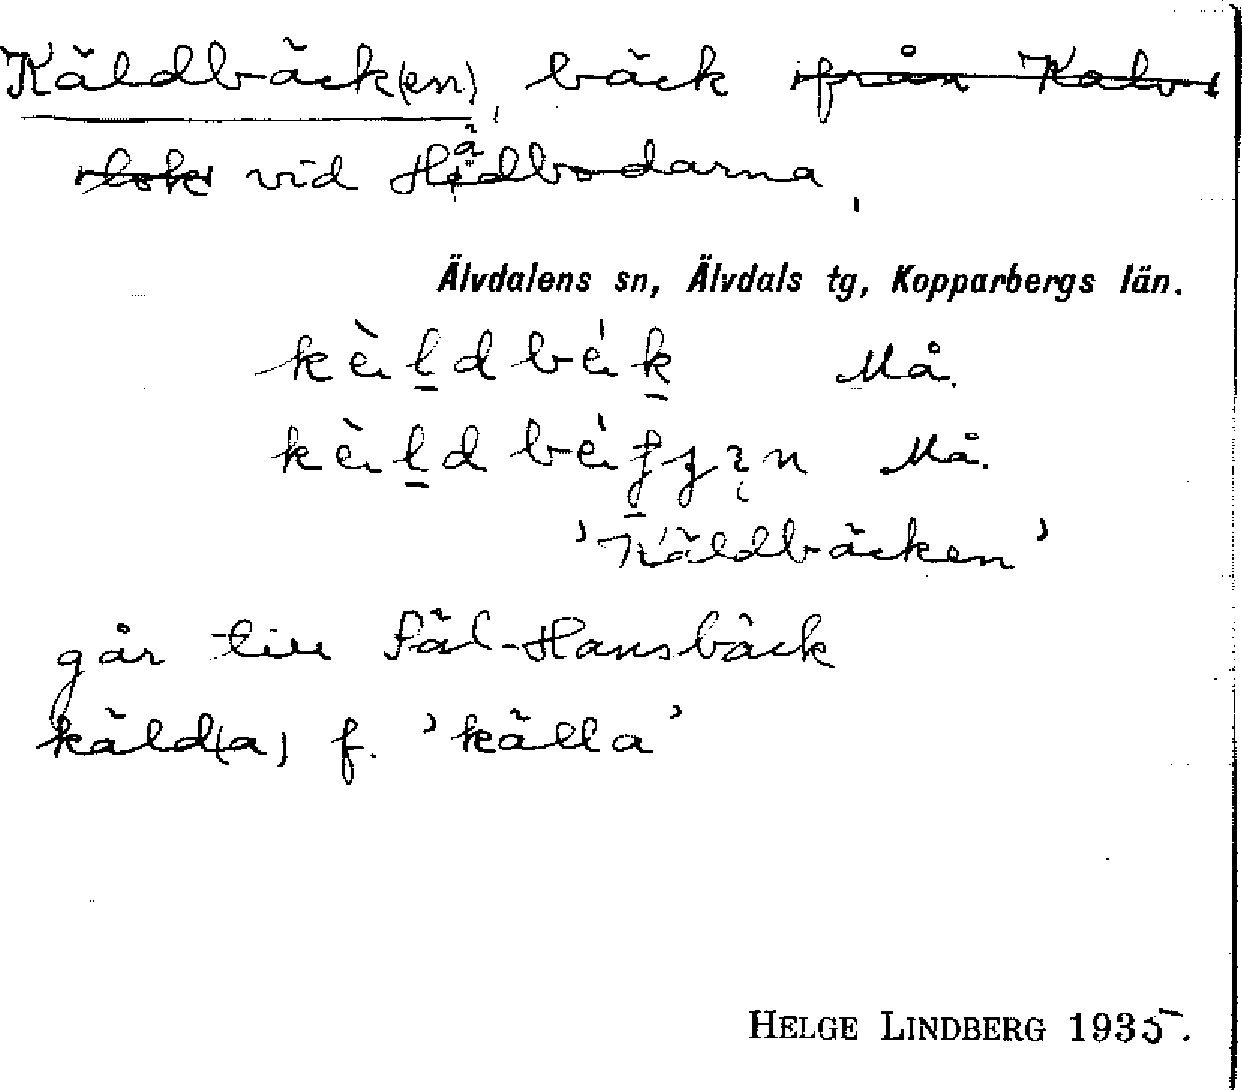 Käldbäck(en), bäck från Kalvs
lok vid Hädbodarna,
Älvdalens sn, Älvdals tg, Kopparbergs län.
Må.
Må.
'Käldbäcken'
går till Päl-Hansbäck
käld(a) f. 'källa'
HELGE LINDBERG 1935.